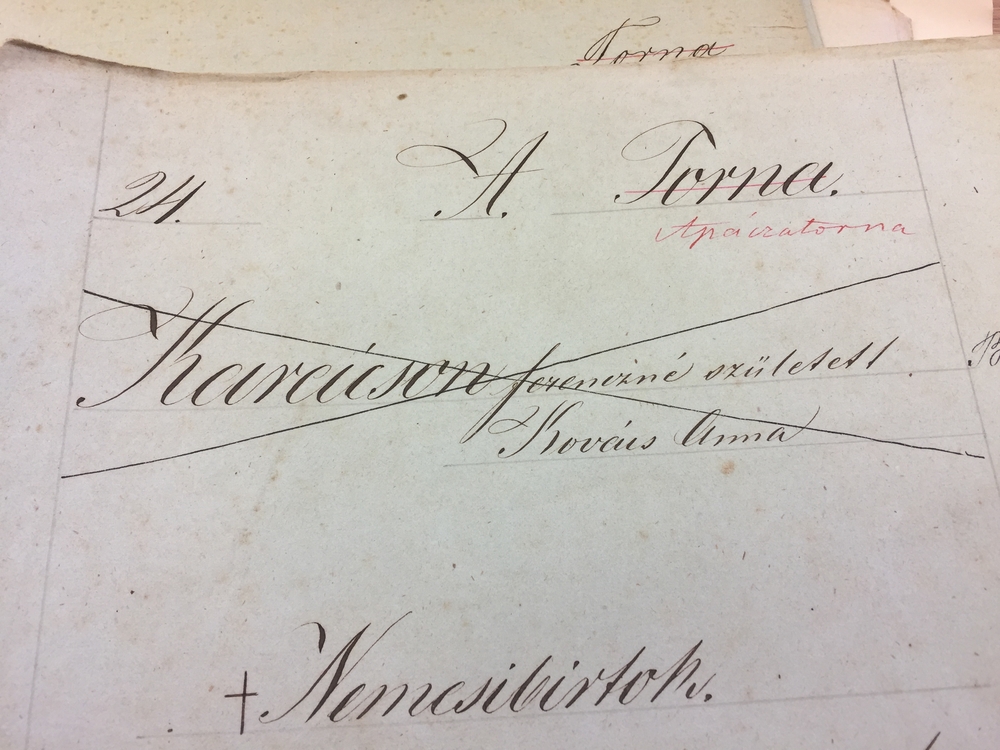 Torna
24. A. Torna.
Apáczatorna
Karácson ferenczné született
Kovács Anna
† Nemesibirtok.